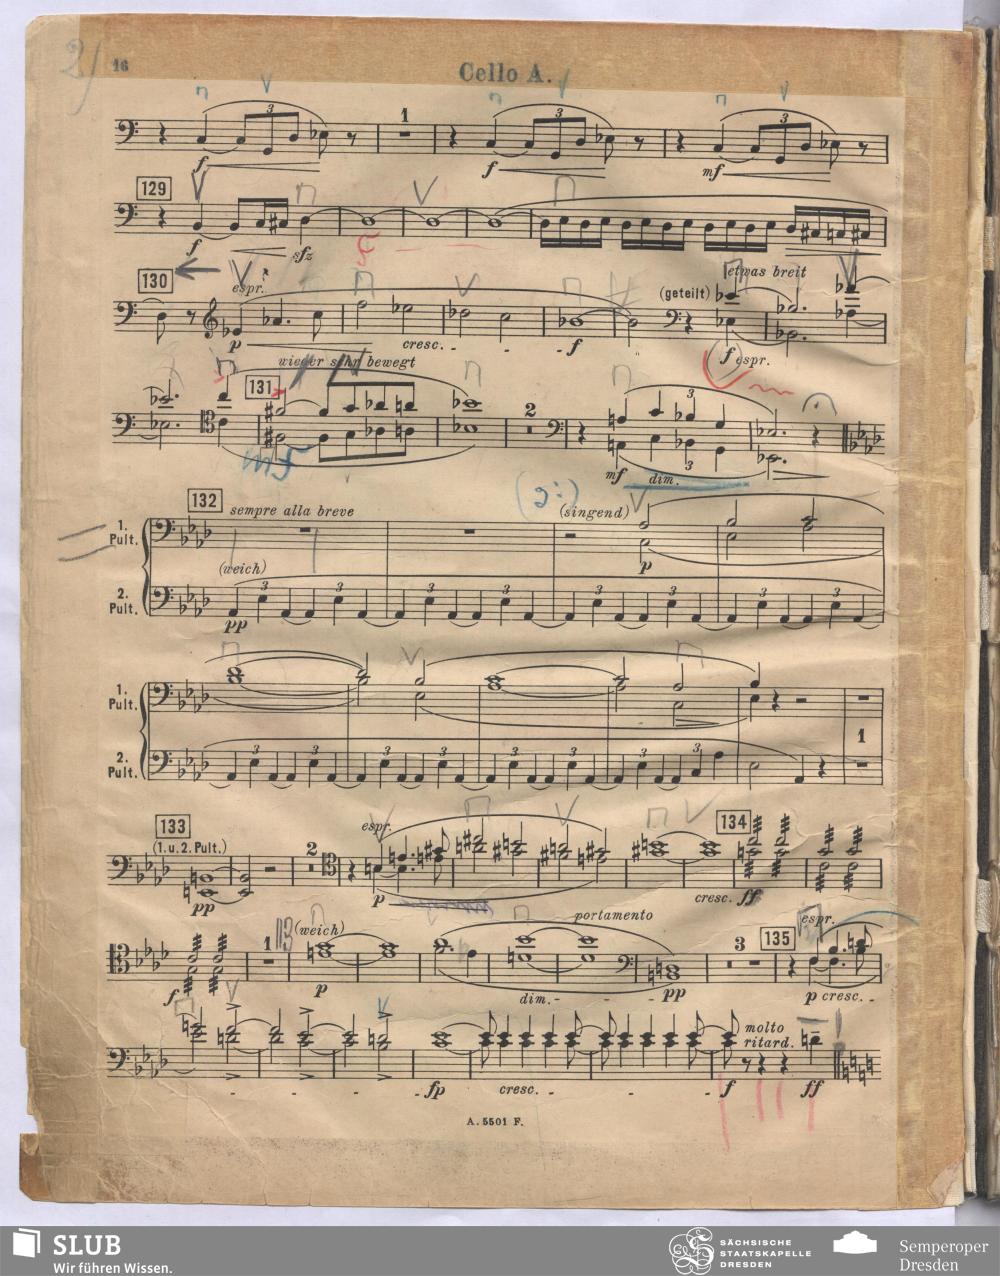 2)
16
Cello A.
3
f
1
3
f
3
mf
129
f
sfz
130
espr.
p
cresc. - - -
f
(geteilt)
etwas breit
f espr.
wieder sehr bewegt
131
mf
2
3
mf dim. 3
132
sempre alla breve
(singend)
1. Pult.
p
(weich)
2. Pult.
3 3 3 3 3 3 3 3 3 3
pp
1. Pult.
1
2. Pult.
3 3 3 3 3 3 3 3
133
(1. u. 2. Pult.)
pp
2
espr.
p
134
cresc. ff
f
1
(weich)
p
portamento
dim. - - - pp
3
135
espr.
p cresc. - -
fp
cresc. - - - -
f
molto
ritard.
ff
A. 5501 F.
SLUB
Wir führen Wissen.
SÄCHSISCHE
STAATSKAPELLE
DRESDEN
Semperoper
Dresden